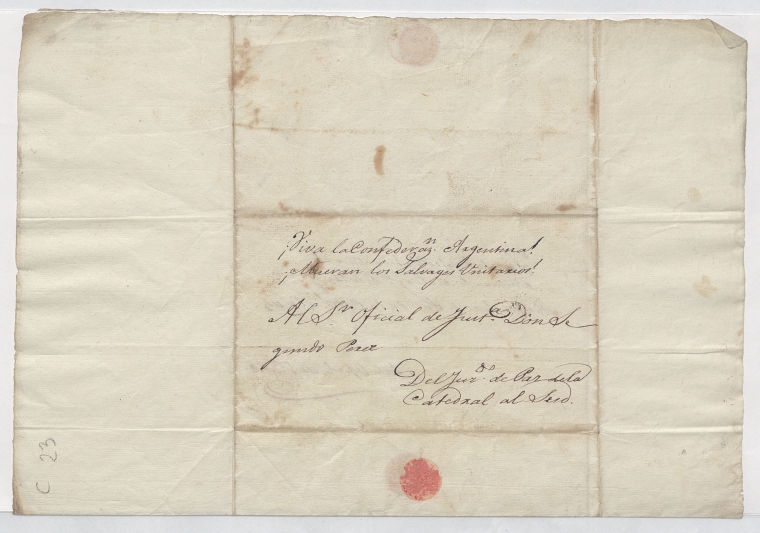 ¡Viva la Confederaⁿ. Argentina!
¡Mueran los Salvages Unitarios!
Al Sʳ. Oficial de Justᵃ. Don Se
gundo Perez
Del Juzᵈᵒ. de Paz dela
Catedral al
C 23